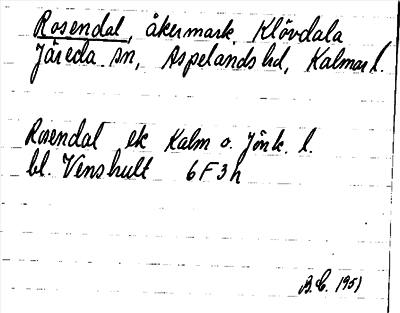 Rosendal, åkermark, Klövdala
Järeda sn, Aspelands hd, Kalmar l.
Rosendal ek Kalm o. Jönk. l.
bl. Venshult 6F3h
B.C. 1951